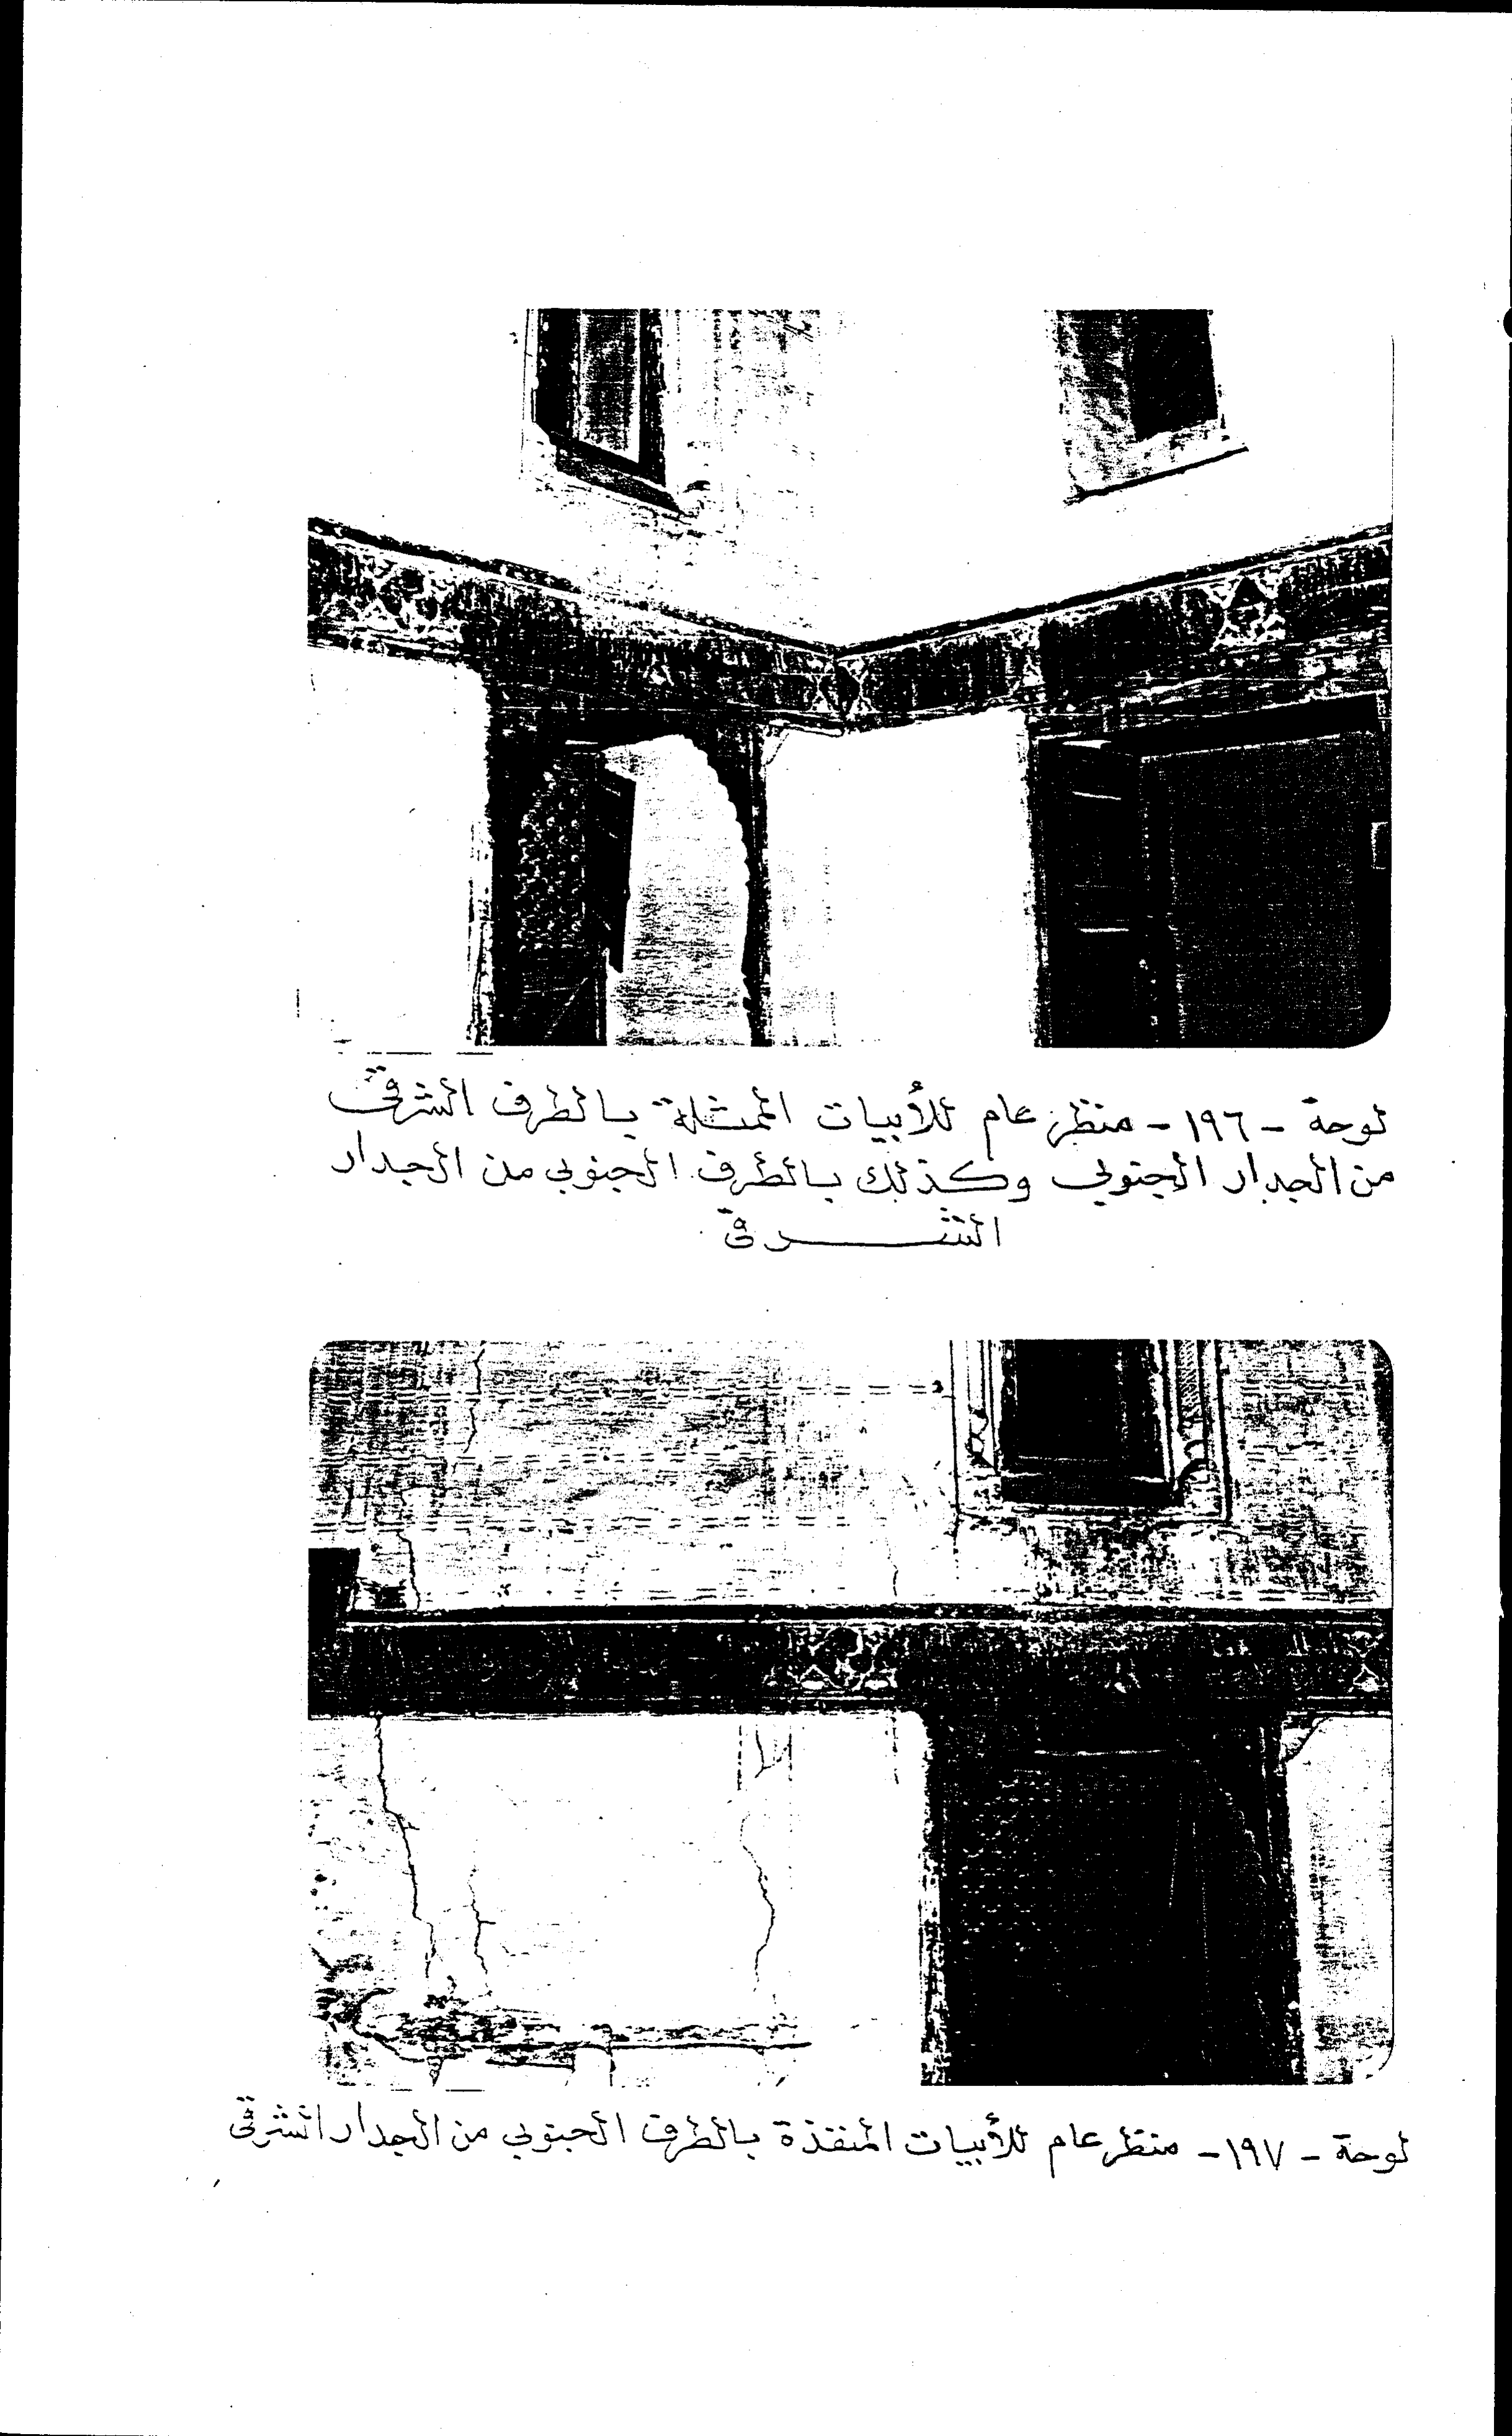 لوحة - ١٩٦ - منظر عام للأبيات الممثلة بالطرف الشرقي
من الجدار الجنوبي وكذلك بالطرف الجنوبي من الجدار
الشرقي
لوحة - ١٩٧ - منظر عام للأبيات المنفذة بالطرف الجنوبي من الجدار الشرقي